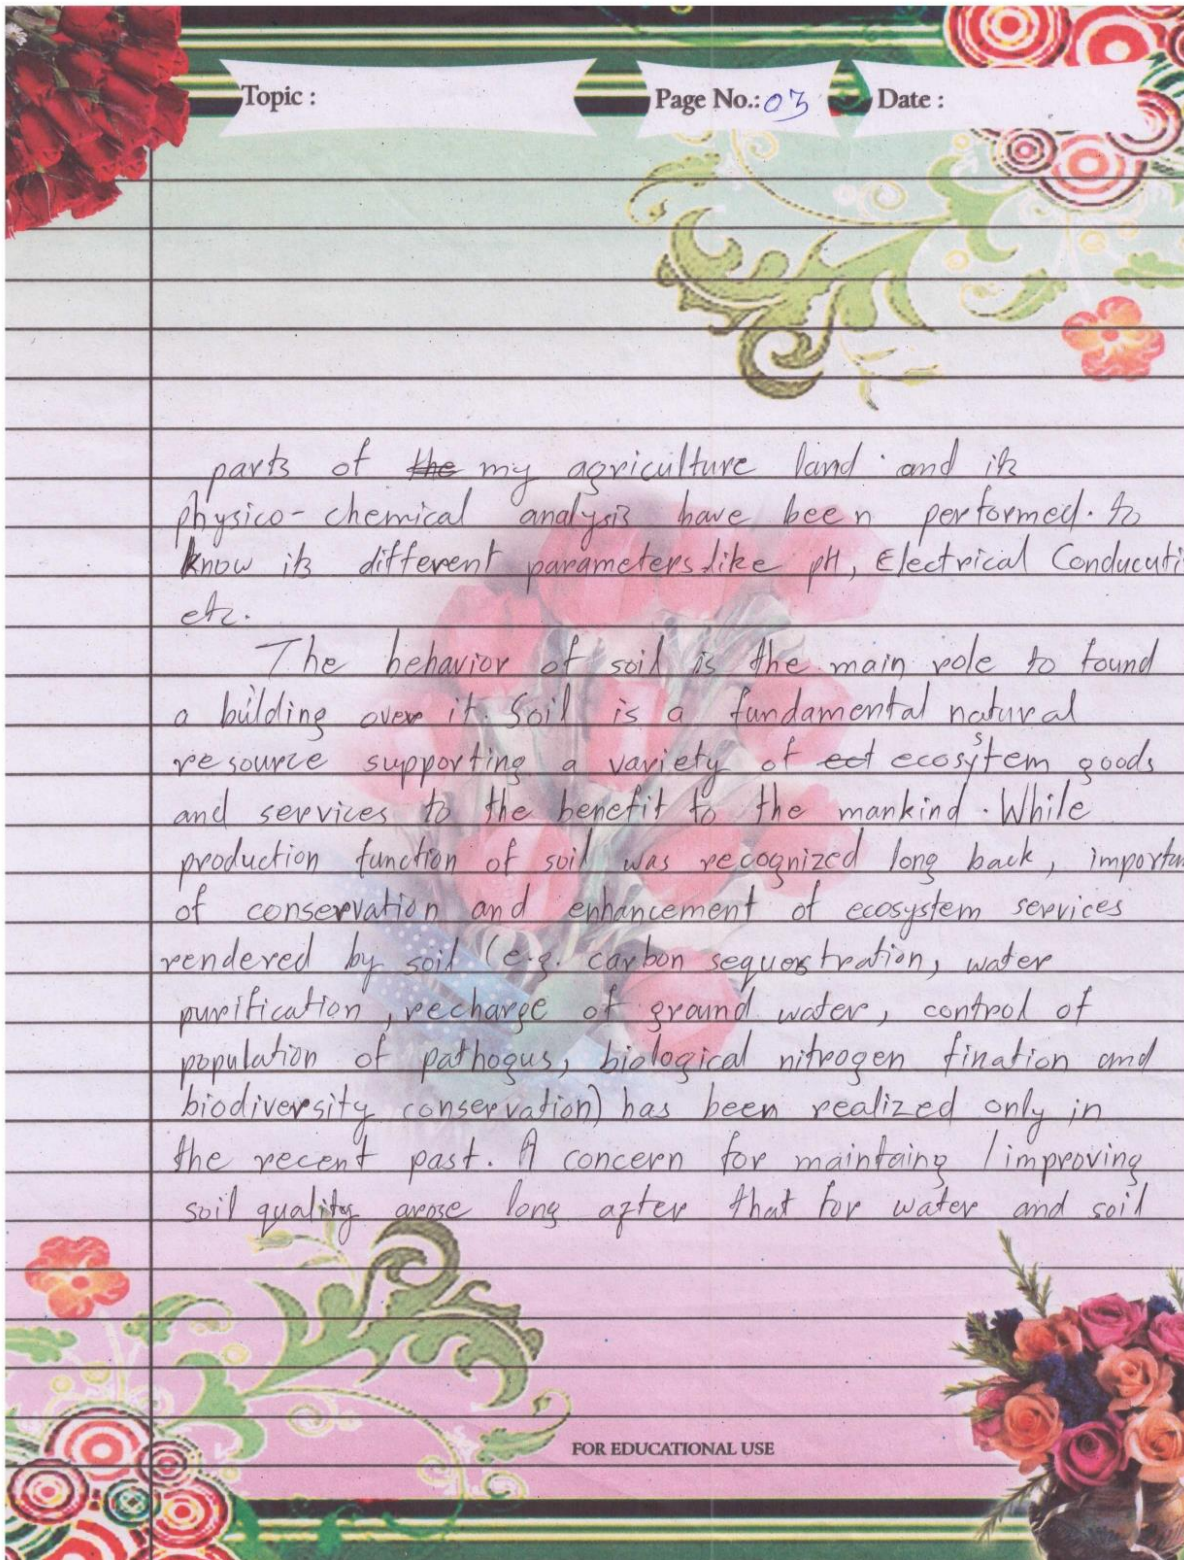 Topic :
Page No.: 03
Date :
parts of the my agriculture land and its
physico-chemical analysis have been performed. to
know its different parameters like pH, Electrical Conducuti
etc.
The behavior of soil is the main role to found
a building over it. Soil is a fundamental natural
resource supporting a variety of ect ecosystem goods
and services to the benefit to the mankind. While
production function of soil was recognized long back, importan
of conservation and enhancement of ecosystem services
rendered by soil (e.g. carbon sequestration, water
purification, recharge of ground water, control of
population of pathogus, biological nitrogen fination and
biodiversity conservation) has been realized only in
the recent past. A concern for maintaing / improving
soil quality arose long after that for water and soil
FOR EDUCATIONAL USE